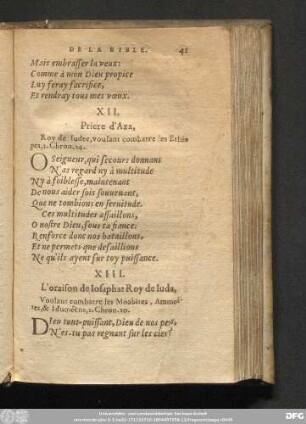 DE LA BIBLE. 41
Mais embrasser la veux:
Comme à mon Dieu propice
Luy feray sacrifice,
Et rendray tous mes vœux.
XII.
Priere d'Aza,
Roy de Iudee, voulant combatre les Ethio
pes, 2. Chron. 14.
O Seigneur, qui secours donnant
N'as regard ny à multitude
Ny à foiblesse, maintenant
De nous aider sois souuenant,
Que ne tombions en seruitude.
Ces multitudes assaillons,
O nostre Dieu, sous ta fiance:
Renforce donc nos bataillons,
Et ne permets que defaillions
Ne qu'ils ayent sur toy puissance.
XIII.
L'oraison de Iosaphat Roy de Iuda,
Voulant combatre les Moabites, Ammoni-
tes, & Idumées, 2. Chron. 20.
Dieu tout-puissant, Dieu de nos peres,
N'es-tu pas regnant sur les cieux?
DFG